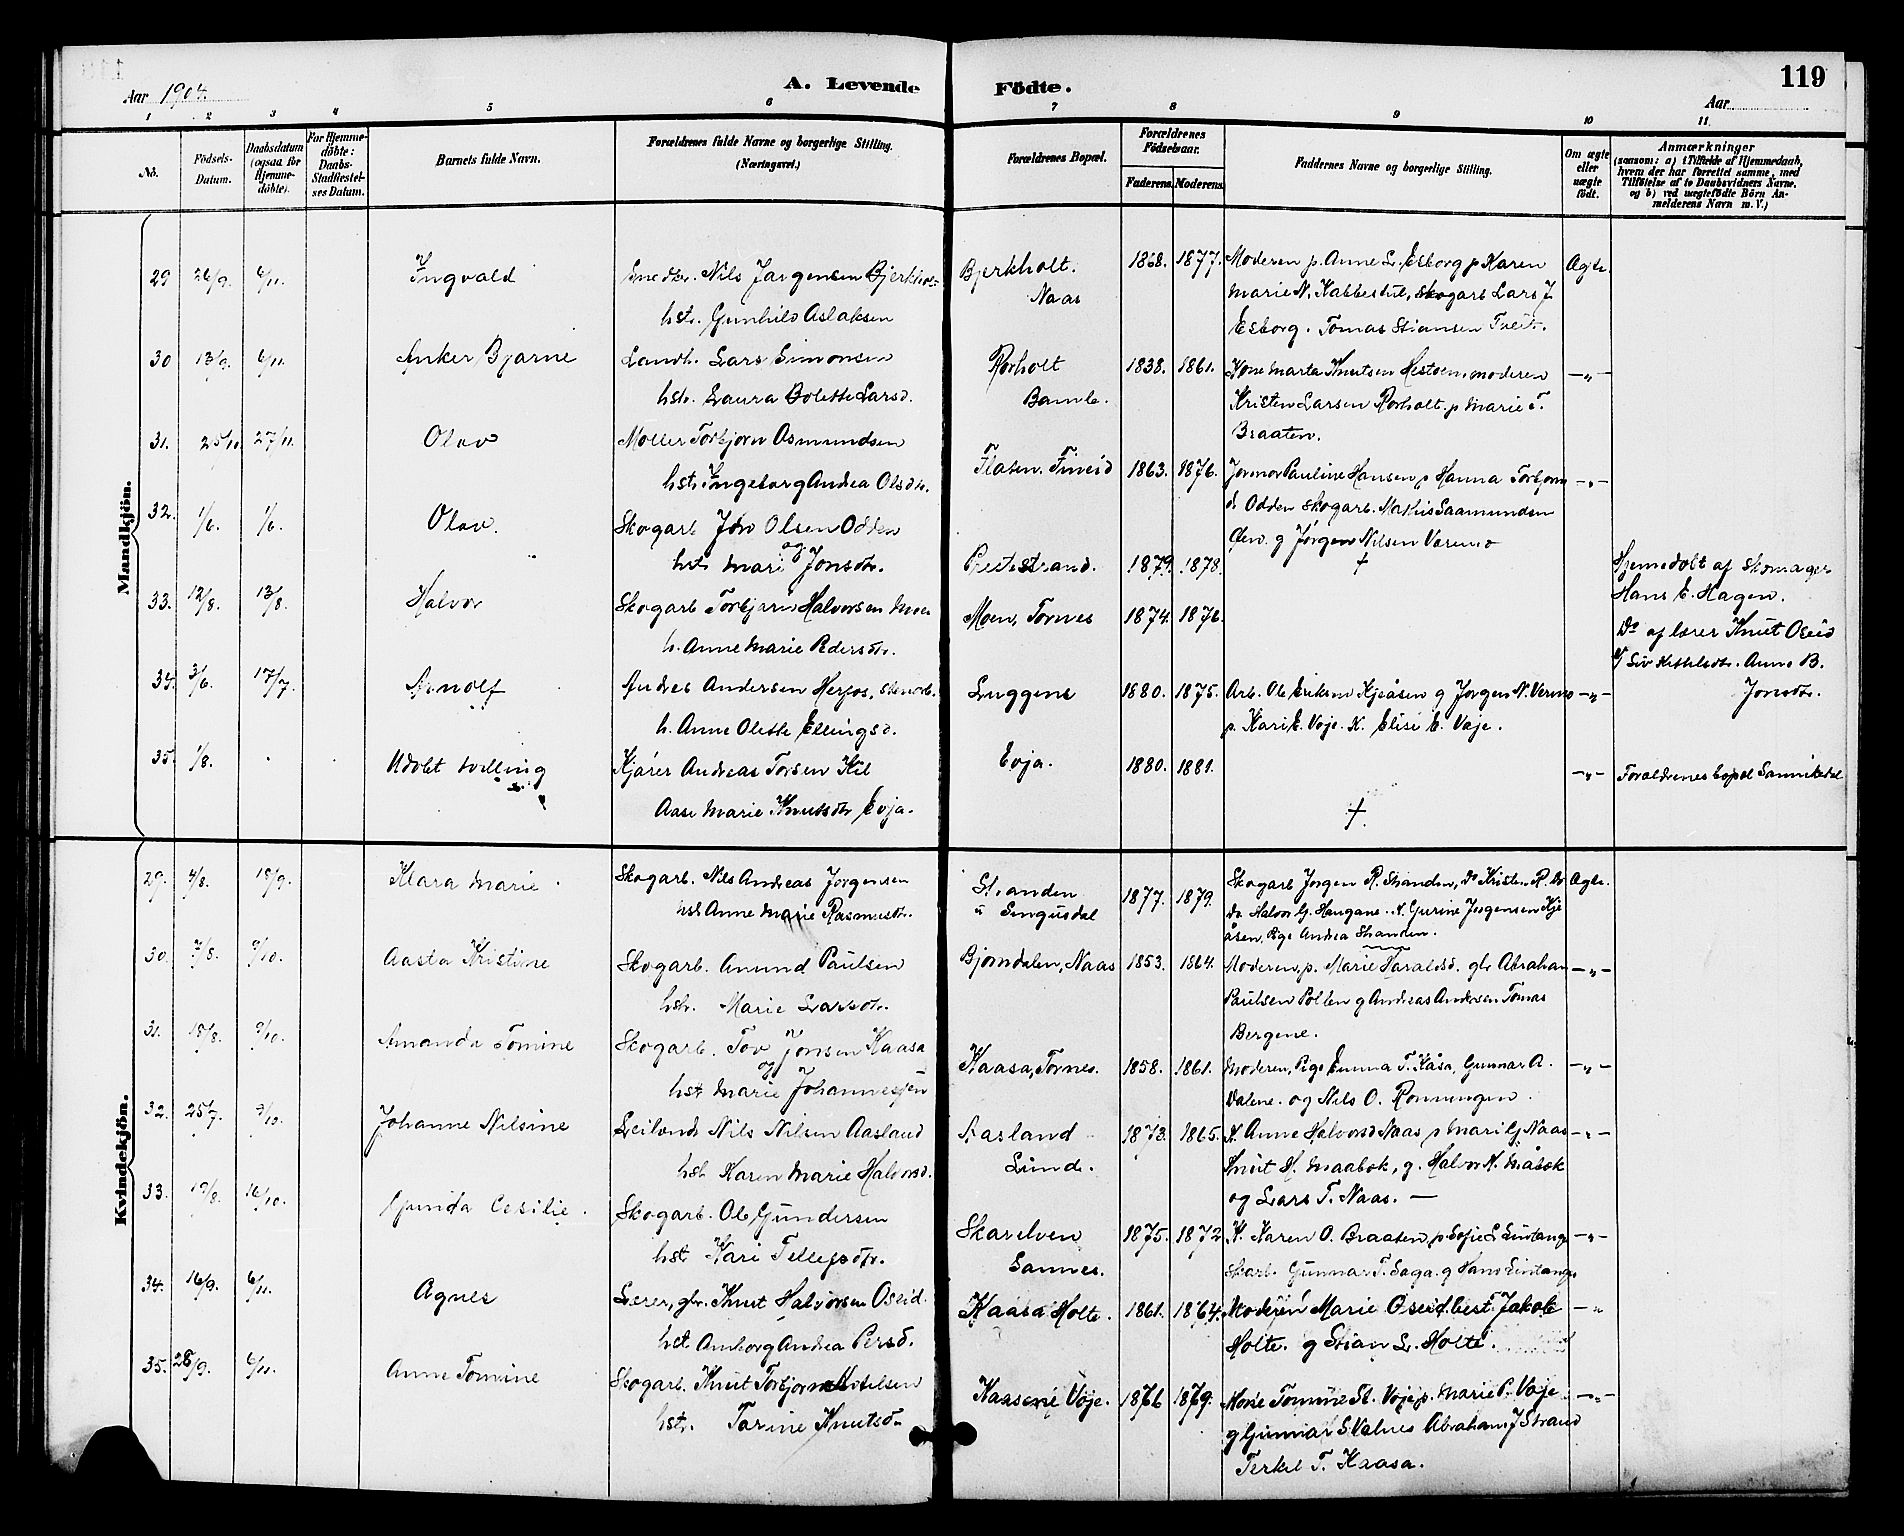 119
Aar 1904.
A. Levende Födte.
Aar
1 2 3 4 5 6 7 8 9 10 11.
No.
Födsels-Datum.
Daabsdatum (ogsaa for Hjemmedöbte).
For Hjemmedöbte: Daabs-Stadfæstelses Datum.
Barnets fulde Navn.
Forældrenes fulde Navne og borgerlige Stilling.
(Næringsvei.)
Forældrenes Bopæl.
Forældrenes Födselsaar.
Faderens. Moderens.
Faddernes Navne og borgerlige Stilling.
Om ægte eller uægte födt.
Anmærkninger
(saasom: a) i Tilfælde af Hjemmedaab,
hvem der har forrettet samme, med
Tilföielse af to Daabsvidners Navne,
og b) ved uægtefödte Börn Anmelderens Navn m. V.)
Mandkjön.
29 26/9. 6/11. Ingvald
Smedkr. Nils Jørgensen Bjerkholt
hstr. Gunhild Aslaksen
Bjerkholt.
Naas
1868. 1877.
Moderen p. Anne L. Esborg p Karen
Marie N. Kabbestul, skogarb Lars J
Esborg. Tomas Stiansen Tveit.
Ægte.
30 13/9. 6/11. Anker Bjarne
Landh. Lars Simonsen
hstr. Laura Bolette Larsd.
Rørholt
Bamle.
1838. 1861.
Kone Marta Knutsen Hestøen, moderen
Kristen Larsen Rørholt. p Marie T.
Braaten.
—„—
31. 25/10. 27/11. Olav
Møller Torbjørn Osmundsen
hstr. Ingeborg Andrea Olsdtr.
Flaten. Fineid
1863. 1876.
Jormor Pauline Hansen p Hanna Torbjørn
d Odden skogarb. Markus Saamundsen
g Jørgen Nilsen Værmo
—„—
32. 1/6. 1/6. Olav.
Skogarb Jørn Olsen Odden
og
hst. Mari Jonsdtr.
Prestestrand.
1879. 1878.
†
Hjemedøbt af skomager
Hans E. Hagen.
33. 12/8. 13/8. Halvor
Skogarb Torbjørn Halvorsen Moen
h. Anne Marie Pedersdtr.
Moen, Tornes
1874. 1876.
Do af lærer Knut Oseid
g Siv Kittelsdtr. Anne B.
Jonsdtr.
34. 3/6. 17/7. Arnolf
Andres Andersen Herfos, stenarb.
h. Anne Olette Ellingsd.
Luggens
1880. 1875.
Arb. Ole Eriksen Kjeåsen g Jørgen N. Vermo
p. Kari E. Voje. K. Elise E. Voje.
—„—
35. 1/8. Udøbt tvilling
Kjører Andreas Torsen Kil
Aase Marie Knutsdtr Evja.
Evja.
1880. 1881.
†
—„—
Forældrenes bopæl Sannikedal
Kvindekjön.
29. 4/8. 18/9. Klara Marie.
Skogarb. Nils Andreas Jørgensen
hst Anne Marie Rasmusdtr.
Stranden
i Sengusdal
1877. 1879.
Skogarb Jørgen R. Stranden, Do Kristen R. Do
Do. Halvor G. Haugane. K. Gurine Jørgensen Kje
åsen, Pige Andrea Stranden.
Ægte.
30. 7/8. 9/10. Aasta Kristine
Skogarb. Anund Paulsen
hstr. Marie Larsdtr.
Bjørndalen, Naas
1853. 1864.
Moderen, p. Marie Haraldsd. gbr Abraham
Paulsen Pollen g Andreas Andersen Tomas
Bergene.
—„—
31. 18/8. 9/10. Amanda Tomine
Skogarb. Tov Jonsen Kaasa
og
hst Marie Johannessen
Kaasa, Tornes.
1858. 1861.
Moderen, Pige Emma T. Kåsa, Gunnar A.
Valene. og Nils O. Rønningen.
—„—
32. 25/7. 9/10. Johanne Nilsine
Leilænd. Nils Nilsen Aasland
hst Karen Marie Halvorsd.
Aasland
Lund.
1873. 1865.
K. Anne Halvorsd Naas p Mari G. Naas
Knut H. Maabøk, g. Halvor K. Måbøk
og Lars T. Naas. —
—„—
33. 19/8. 16/10. Gunda Cesilie.
Skogarb. Ole Gundersen
hst Kari Tellefsdtr.
Skarelven
Sannes.
1875. 1872
K. Karen O. Braaten, p. Sofie L Lintang
Skarb. Gunnar T. Saga. g Hans Lintang.
—„—
34. 16/9. 6/11. Agnes
Lærer, gbr. Knut Halvorsen Oseid.
hst Anborg Andrea Persd.
Kaasa Holte.
1861. 1864.
Moderen Marie Oseid. best. Jakob
Holte. g Stian L. Holte.
—„
35. 28/9. 6/11. Anne Tomine
Skogarb. Knut Torbjørn Kittelsen
hstr. Tarine Knutsdtr
Kaasene Voje.
1876 1879.
Kone Tomine St. Voje p. Marie P. Voje
g Gunnar S. Valnes Abraham J Strand
Terkel T. Kaasa.
—„—